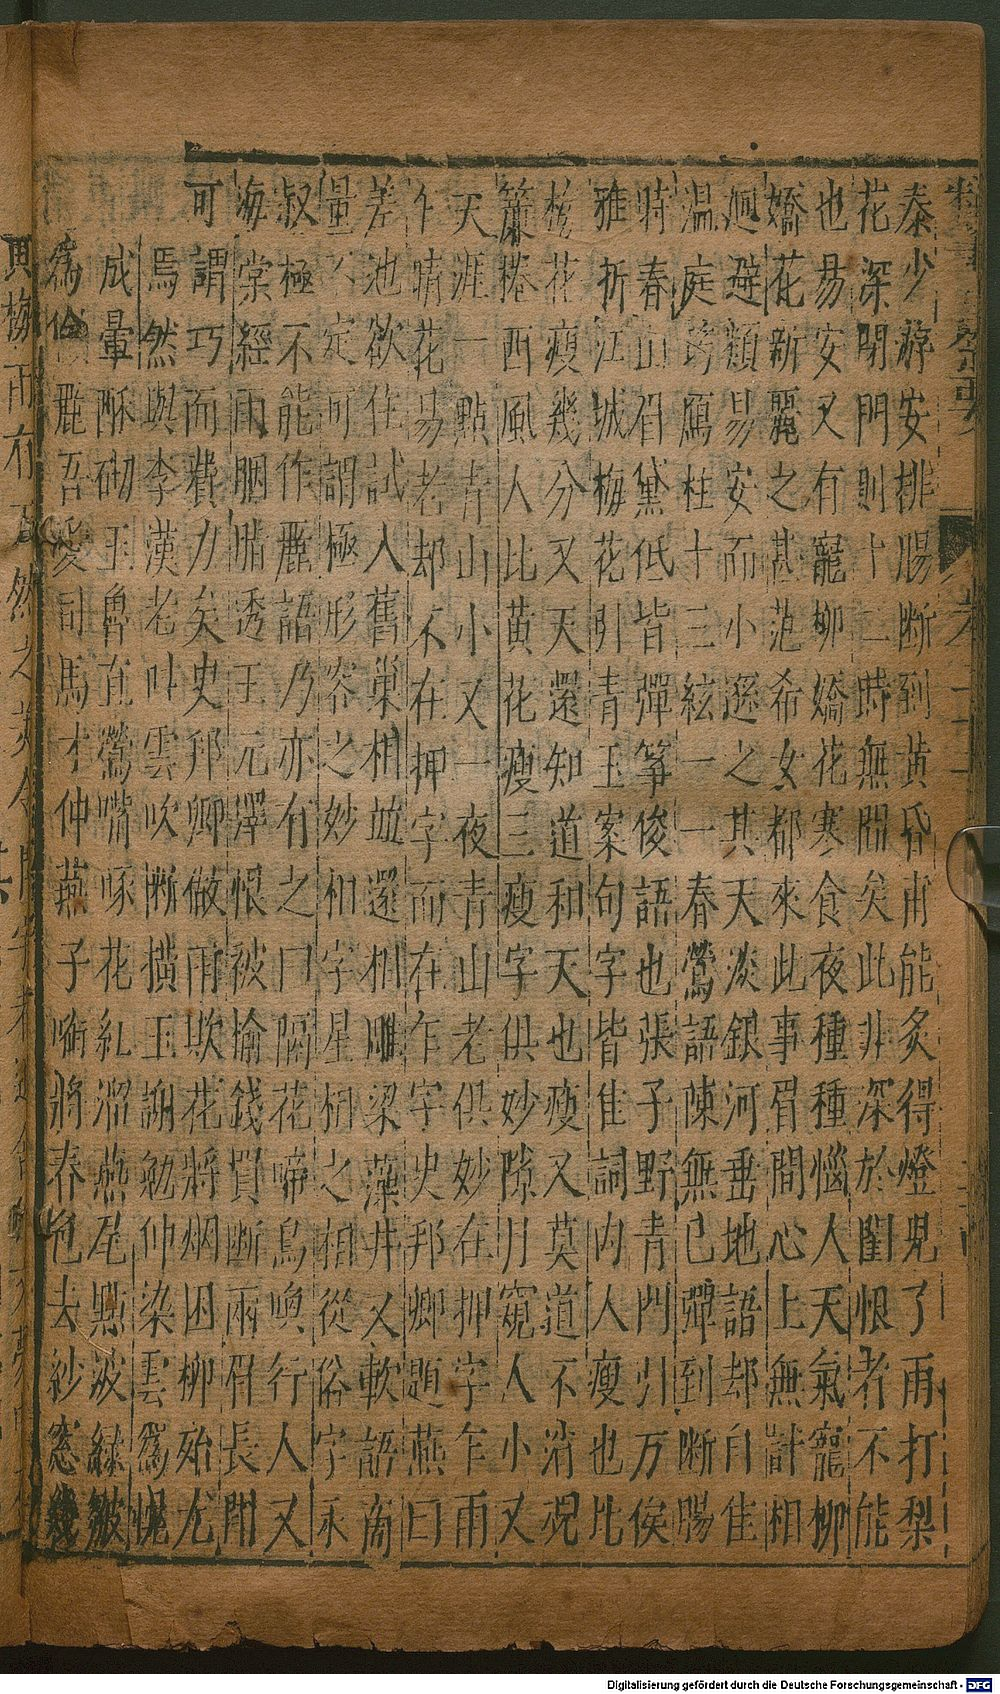 秦少游安排腸斷到黃昏甫能炙得燈兒了雨打梨
花深閉門則十二時無間矣此非深於閨恨者不能
也易安又有寵柳嬌花寒食夜種種惱人天氣寵柳
嬌花新麗之甚范希文都來此事眉間心上無計相
廻避類易安而小遜之其天淡銀河垂地語却自佳
温庭筠鴈柱十三絃一一春鶯語陳無已彈到斷腸
時春山眉黛低皆彈箏俊語也張子野青門引万俟
雅 折江城梅花引青玉案句字皆佳詞內人瘦也比
梅花瘦幾分又天還知道和天也瘦又莫道不消魂
簾捲西風人比黃花瘦三瘦字俱妙隙月窺人小又
天涯一點青山小又一夜青山老俱妙在押字乍雨
乍晴花易老却不在押字而在乍字史邦卿題燕曰
差池欲住試入舊巢相並還相雕梁藻井又軟語商
量不定可謂極形容之妙相字星相之相從俗字永
叔極不能作麗語乃亦有之曰隔花啼鳥喚行人又
海棠經雨胭脂透王元澤恨被榆錢買斷兩眉長鬬
可謂巧而費力矣史邦卿做雨欺花將烟困柳殆尤
焉然與李漢老叫雲吹斷橫玉謝勉仲染雲爲幌
成暈酥砌玉魯直鶯嘴啄花紅溜燕尾點波綠皺
爲 麗吾愛司馬才仲燕子啣將春色去紗窓幾
Digitalisierung gefördert durch die Deutsche Forschungsgemeinschaft - DFG